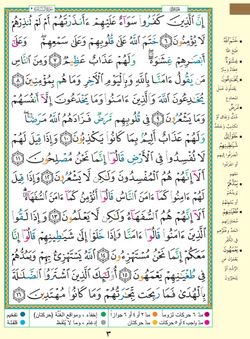 إِنَّ ٱلَّذِينَ كَفَرُوا۟ سَوَآءٌ عَلَيْهِمْ ءَأَنذَرْتَهُمْ أَمْ لَمْ تُنذِرْهُمْ
لَا يُؤْمِنُونَ ﴿٦﴾ خَتَمَ ٱللَّهُ عَلَىٰ قُلُوبِهِمْ وَعَلَىٰ سَمْعِهِمْ ۖ وَعَلَىٰٓ
أَبْصَـٰرِهِمْ غِشَـٰوَةٌ ۖ وَلَهُمْ عَذَابٌ عَظِيمٌ ﴿٧﴾ وَمِنَ ٱلنَّاسِ
مَن يَقُولُ ءَامَنَّا بِٱللَّهِ وَبِٱلْيَوْمِ ٱلْـَٔاخِرِ وَمَا هُم بِمُؤْمِنِينَ ﴿٨﴾
يُخَـٰدِعُونَ ٱللَّهَ وَٱلَّذِينَ ءَامَنُوا۟ وَمَا يَخْدَعُونَ إِلَّآ أَنفُسَهُمْ
وَمَا يَشْعُرُونَ ﴿٩﴾ فِى قُلُوبِهِم مَّرَضٌ فَزَادَهُمُ ٱللَّهُ مَرَضًا ۖ
وَلَهُمْ عَذَابٌ أَلِيمٌۢ بِمَا كَانُوا۟ يَكْذِبُونَ ﴿١٠﴾ وَإِذَا قِيلَ لَهُمْ
لَا تُفْسِدُوا۟ فِى ٱلْأَرْضِ قَالُوٓا۟ إِنَّمَا نَحْنُ مُصْلِحُونَ ﴿١١﴾
أَلَآ إِنَّهُمْ هُمُ ٱلْمُفْسِدُونَ وَلَـٰكِن لَّا يَشْعُرُونَ ﴿١٢﴾ وَإِذَا قِيلَ
لَهُمْ ءَامِنُوا۟ كَمَآ ءَامَنَ ٱلنَّاسُ قَالُوٓا۟ أَنُؤْمِنُ كَمَآ ءَامَنَ ٱلسُّفَهَآءُ ۗ
أَلَآ إِنَّهُمْ هُمُ ٱلسُّفَهَآءُ وَلَـٰكِن لَّا يَعْلَمُونَ ﴿١٣﴾ وَإِذَا لَقُوا۟
ٱلَّذِينَ ءَامَنُوا۟ قَالُوٓا۟ ءَامَنَّا وَإِذَا خَلَوْا۟ إِلَىٰ شَيَـٰطِينِهِمْ قَالُوٓا۟ إِنَّا
مَعَكُمْ إِنَّمَا نَحْنُ مُسْتَهْزِءُونَ ﴿١٤﴾ ٱللَّهُ يَسْتَهْزِئُ بِهِمْ وَيَمُدُّهُمْ
فِى طُغْيَـٰنِهِمْ يَعْمَهُونَ ﴿١٥﴾ أُو۟لَـٰٓئِكَ ٱلَّذِينَ ٱشْتَرَوُا۟ ٱلضَّلَـٰلَةَ
بِٱلْهُدَىٰ فَمَا رَبِحَت تِّجَـٰرَتُهُمْ وَمَا كَانُوا۟ مُهْتَدِينَ ﴿١٦﴾
٣